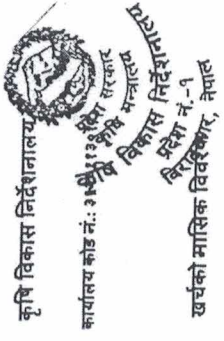 कृषि विकास निर्देशनालय
कार्यालय कोड नं.:
सरकार
कृषि मन्त्रालय
कृषि विकास निर्देशनालय
प्रदेश नं.-१
नेपाल
खर्चको मासिक विवरण